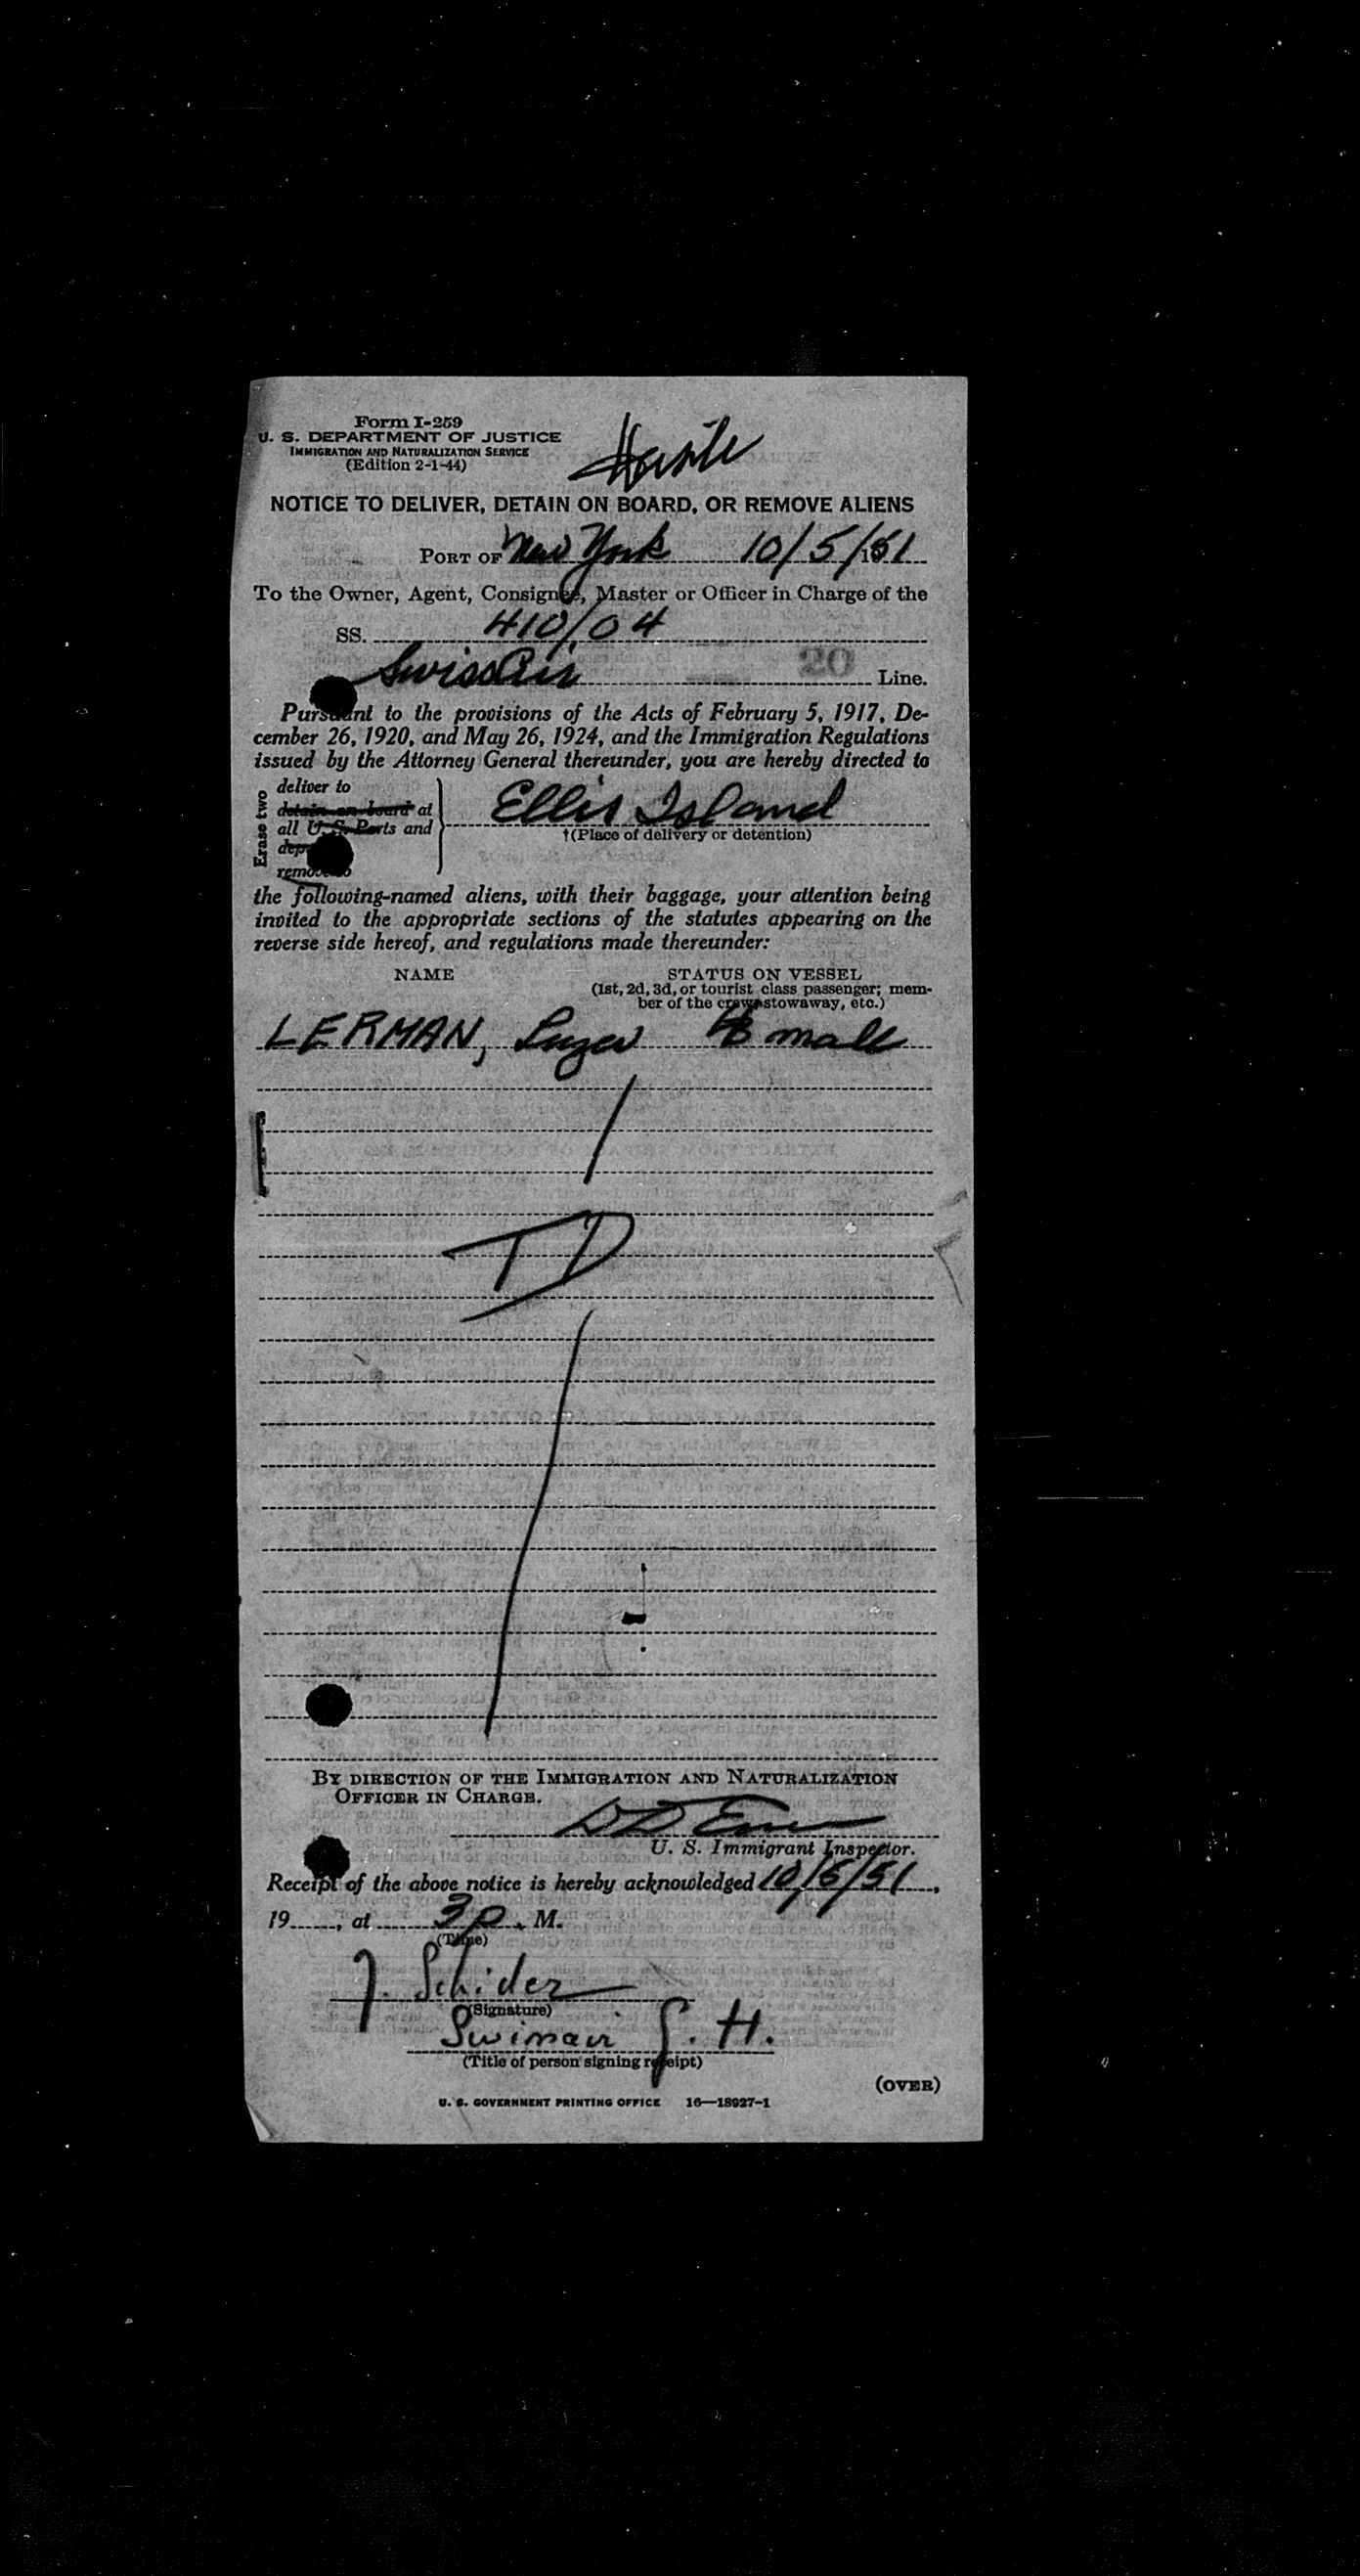 Form I-259
U. S. DEPARTMENT OF JUSTICE
IMMIGRATION AND NATURALIZATION SERVICE
(Edition 2-1-44)
NOTICE TO DELIVER, DETAIN ON BOARD, OR REMOVE ALIENS
PORT OF New York 10/5/51
To the Owner, Agent, Consignee, Master or Officer in Charge of the
SS. 410/04
SwissAir 20 Line.
Pursuant to the provisions of the Acts of February 5, 1917, De-
cember 26, 1920, and May 26, 1924, and the Immigration Regulations
issued by the Attorney General thereunder, you are hereby directed to
Erase two
deliver to
detain on board at
all U. S. Ports and
remove to
Ellis Island
†(Place of delivery or detention)
the following-named aliens, with their baggage, your attention being
invited to the appropriate sections of the statutes appearing on the
reverse side hereof, and regulations made thereunder:
NAME STATUS ON VESSEL
(1st, 2d, 3d, or tourist class passenger; mem-
ber of the crew, stowaway, etc.)
LERMAN, male
TD
BY DIRECTION OF THE IMMIGRATION AND NATURALIZATION
OFFICER IN CHARGE.
U. S. Immigrant Inspector.
Receipt of the above notice is hereby acknowledged 10/5/51,
19 , at 3 P. M.
(Time)
J. Schider
(Signature)
G. H.
(Title of person signing receipt)
(OVER)
U. S. GOVERNMENT PRINTING OFFICE 16—18927-1